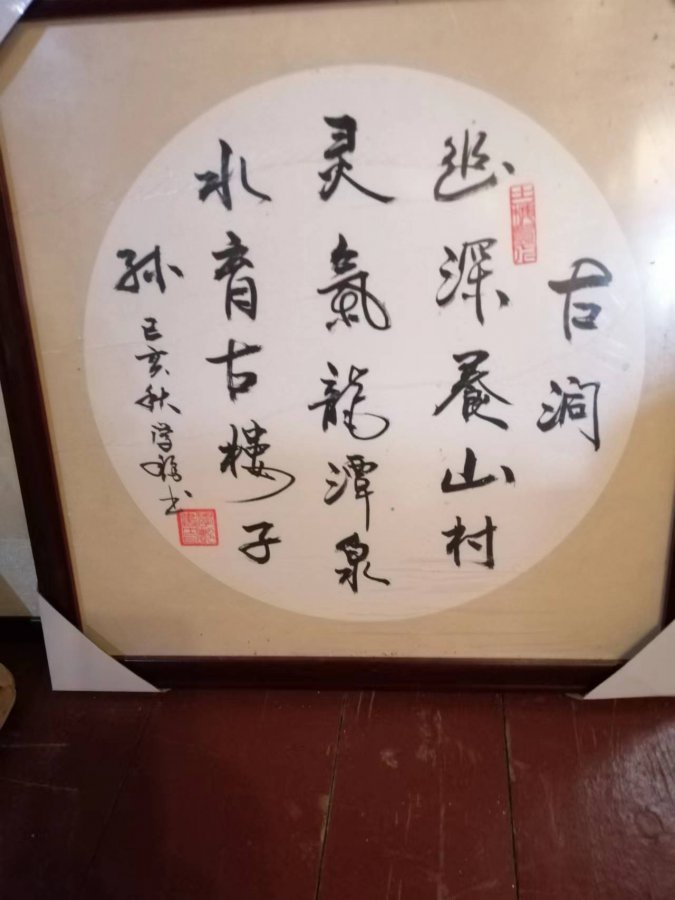 古洞
幽深養山村
灵氣龍潭泉
水育古樓子
孫
己亥秋学穎书